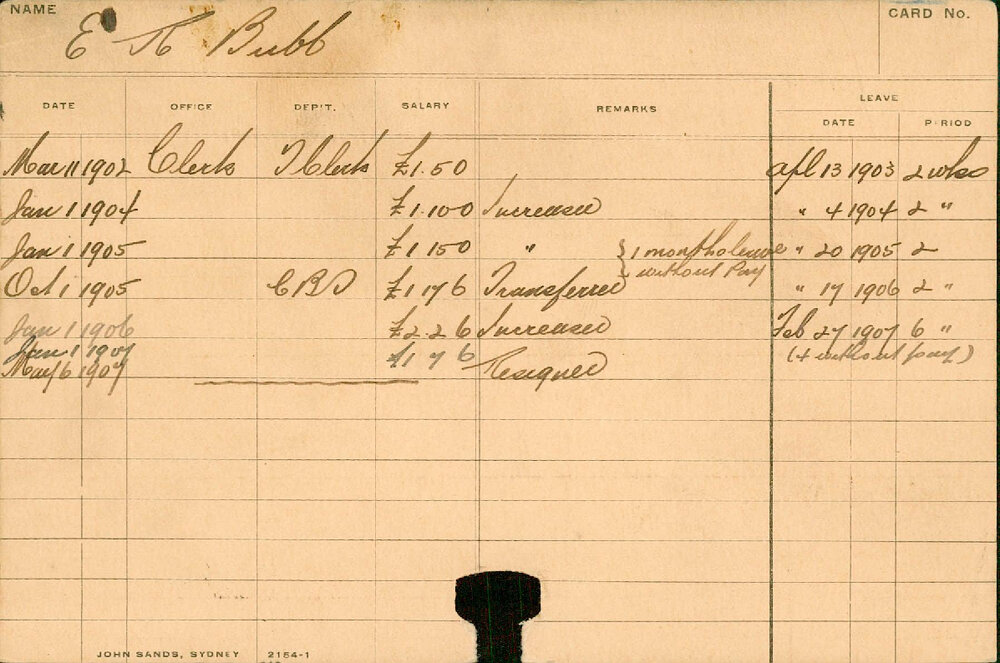 NAME
CARD No.
E H Bubb
DATE OFFICE DEP'T. SALARY REMARKS LEAVE
DATE PERIOD
Mar 11 1902 Clerk T Clerk £1.5 0 Apl 13 1903 2 wks
Jan 1 1904 £1.10 0 Increased " 4 1904 2 "
Jan 1 1905 £1 15 0 " 1 months leave " 20 1905 2
without Pay
Oct 1 1905 CBD £1 17 6 Transferred " 17 1906 2 "
Jan 1 1906 £2.2.6 Increased Feb 27 1907 6 "
Jan 1 1907 £1 7 6 (4 without pay)
May 6 1907 Resigned
JOHN SANDS, SYDNEY 2154-1